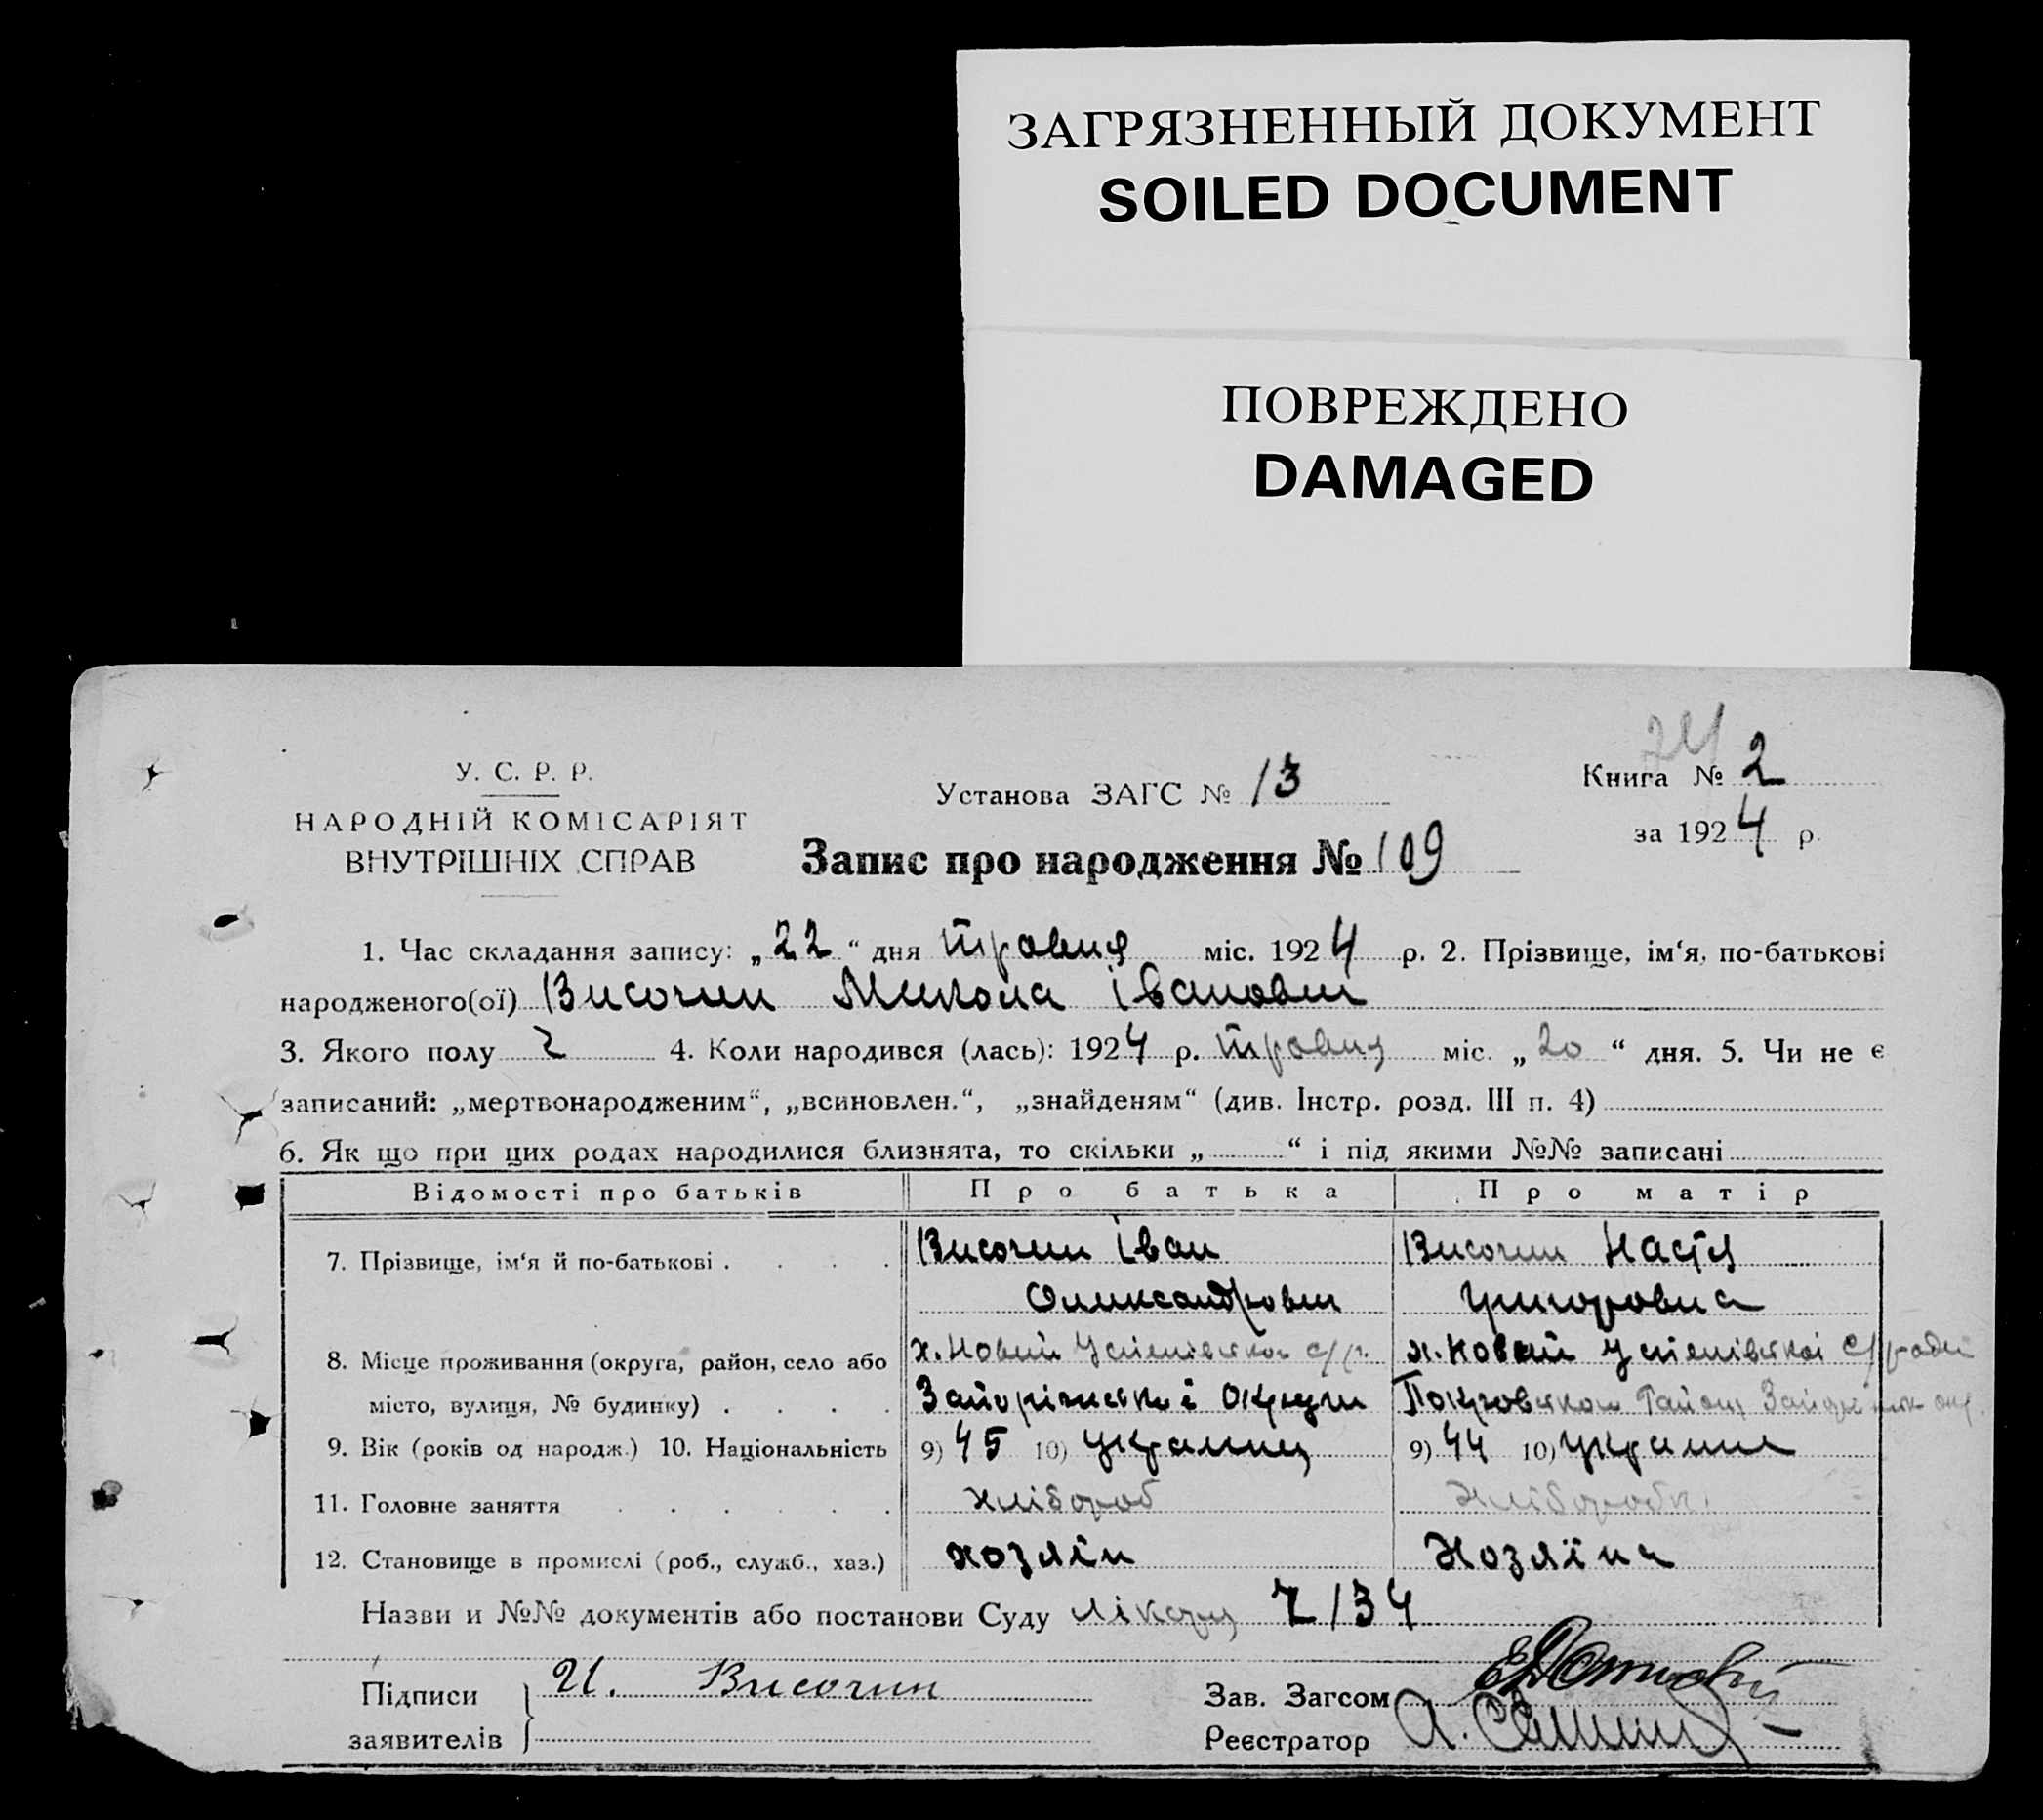 ЗАГРЯЗНЕННЫЙ ДОКУМЕНТ
SOILED DOCUMENT
ПОВРЕЖДЕНО
DAMAGED
24
У. С. Р. Р.
НАРОДНІЙ КОМІСАРІЯТ
ВНУТРІШНІХ СПРАВ
Установа ЗАГС № 13
Книга № 2
за 1924 р.
Запис про народження № 109
1. Час складання запису: „22“ дня травня міс. 1924 р. 2. Прізвище, ім‘я, по-батькові
народженого(ої) Височин Микола Іванович
3. Якого полу ч 4. Коли народився (лась): 1924 р. травня міс. „20“ дня. 5. Чи не є
записаний: „мертвонародженим“, „всиновлен.“, „знайденям“ (див. Інстр. розд. III п. 4)
6. Як що при цих родах народилися близнята, то скільки „ “ і під якими №№ записані
Відомості про батьків Про батька Про матір
7. Прізвище, ім‘я й по-батькові . . . . Височин Іван Височин Настя
Олександрович Григоровна
8. Місце проживання (округа, район, село або х. Новий Успенівської с/р. х. Новий Успенівської с/ради
місто, вулиця, № будинку) . . . . Запоріжської Округи Покровського Району
9. Вік (років од народж.) 10. Національність 9) 45 10) українец 9) 44 10) україн
11. Головне заняття . . . . . . хлібороб хлібороб
12. Становище в промислі (роб., служб., хаз.) хозяїн хозяїна
Назви и №№ документів або постанови Суду лікаря 7/34
Підписи И. Височин Зав. Загсом
заявителів Реєстратор